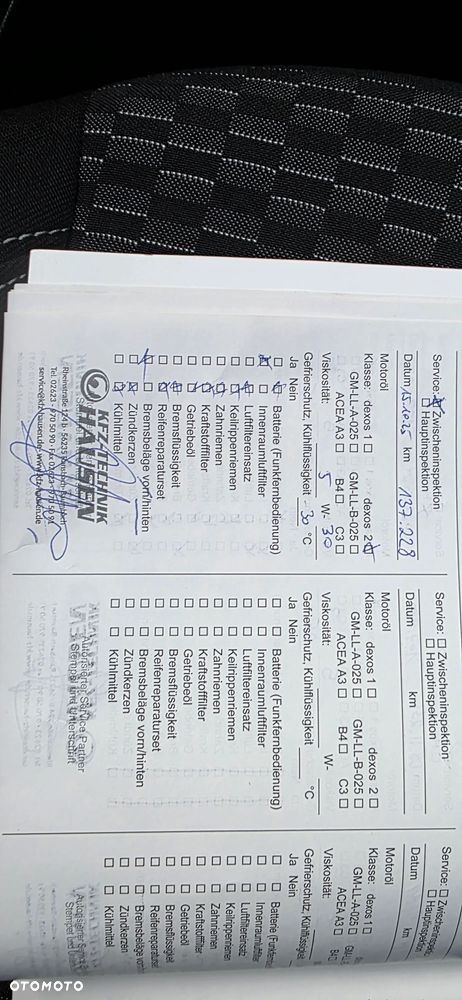 Service: ☒ Zwischeninspektion
☐ Hauptinspektion
Datum 15.10.25 km 137.228
Motoröl
Klasse: dexos 1 ☐ dexos 2 ☒
GM-LL-A-025 ☐ GM-LL-B-025 ☐
ACEA A3 ☐ B4 ☐ C3 ☐
Viskosität: 5 W- 30
Gefrierschutz, Kühlflüssigkeit -30 °C
Ja Nein
Batterie (Funkfernbedienung)
Innenraumluftfilter
Luftfiltereinsatz
Keilrippenriemen
Zahnriemen
Kraftstofffilter
Getriebeöl
Bremsflüssigkeit
Reifenreparaturset
Bremsbeläge vorn/hinten
Zündkerzen
Kühlmittel
KFZ-TECHNIK
HAUSEN
Service: ☐ Zwischeninspektion
☐ Hauptinspektion
Datum km
Motoröl
Klasse: dexos 1 ☐ dexos 2 ☐
GM-LL-A-025 ☐ GM-LL-B-025 ☐
ACEA A3 ☐ B4 ☐ C3 ☐
Viskosität: W-
Gefrierschutz, Kühlflüssigkeit °C
Ja Nein
☐ ☐ Batterie (Funkfernbedienung)
☐ ☐ Innenraumluftfilter
☐ ☐ Luftfiltereinsatz
☐ ☐ Keilrippenriemen
☐ ☐ Zahnriemen
☐ ☐ Kraftstofffilter
☐ ☐ Getriebeöl
☐ ☐ Bremsflüssigkeit
☐ ☐ Reifenreparaturset
☐ ☐ Bremsbeläge vorn/hinten
☐ ☐ Zündkerzen
☐ ☐ Kühlmittel
Autorisierter Service Partner
Stempel und Unterschrift
Service: ☐ Zwischeninspek
☐ Hauptinspektion
Datum km
Motoröl
Klasse: dexos 1 ☐
GM-LL-A-025 ☐
ACEA A3 ☐
Viskosität:
Gefrierschutz, Kühlflüssigkeit
Ja Nein
☐ ☐ Batterie (Funkfern
☐ ☐ Innenraumluftfilter
☐ ☐ Luftfiltereinsatz
☐ ☐ Keilrippenriemen
☐ ☐ Zahnriemen
☐ ☐ Kraftstofffilter
☐ ☐ Getriebeöl
☐ ☐ Bremsflüssigkeit
☐ ☐ Reifenreparaturset
☐ ☐ Bremsbeläge vorn
☐ ☐ Zündkerzen
☐ ☐ Kühlmittel
Autorisierter Service
Stempel und
OTOMOTO